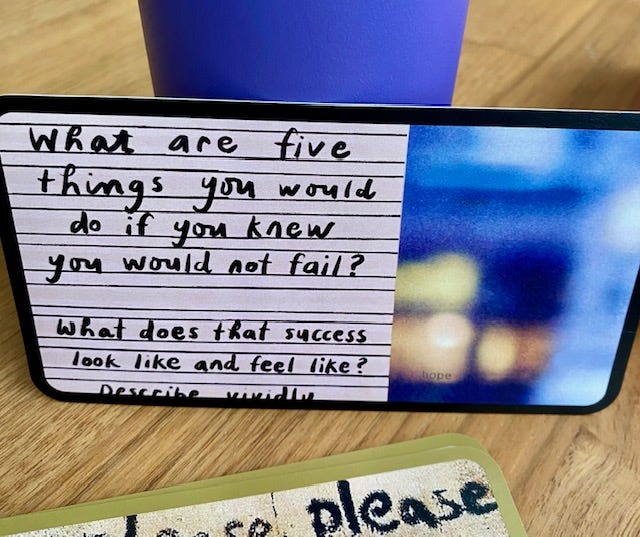 What are five
things you would
do if you knew
you would not fail?
What does that success
look like and feel like?
Describe vividly
hope
please, please